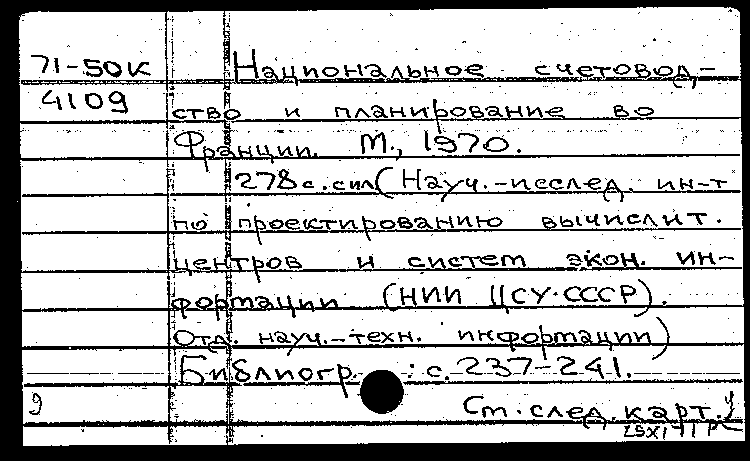 71-50К Национальное счетовод-
4109 ство и планирование во
Франции. М., 1970.
278 с. с ил (Науч.-исслед. ин-т
по проектированию вычислит.
центров и систем экон. ин-
формации (НИИ ЦСУ СССР).
Отд. науч.-техн. информации)
Библиогр.: с. 237-241.
9 См. след. карт.